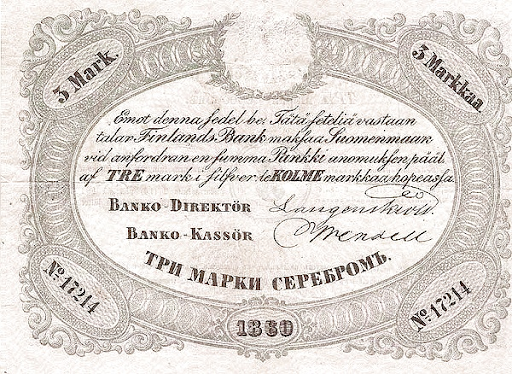 3 Mark.
3 Markkaa
Emot denna sedel be- Tätä seteliä vastaan
talar Finlands Bank maksaa Suomenmaan
vid anfordran en summa Pankki anomuksen päälle
af TRE mark i silfver. KOLME markkaa hopeassa.
BANKO-DIREKTÖR
BANKO-KASSÖR Wendell
ТРИ МАРКИ СЕРЕБРОМЪ.
No 17214
No 17214
1860